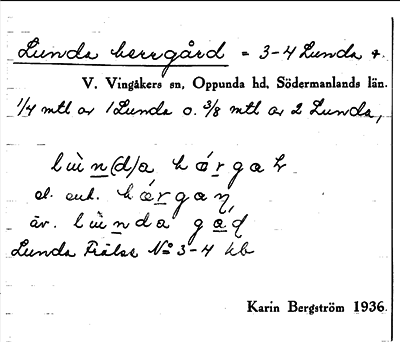 Lunda herrgård = 3-4 Lunda +.
V. Vingåkers sn, Oppunda hd, Södermanlands län.
1/4 mtl av 1 Lunda o. 3/8 mtl av 2 Lunda,
lùn(d)a hǽrgaṣ
el. enk. hǽrgaɳ,
äv. lùnda gaɖ
Lunda Frälse No 3-4 hb
Karin Bergström 1936.